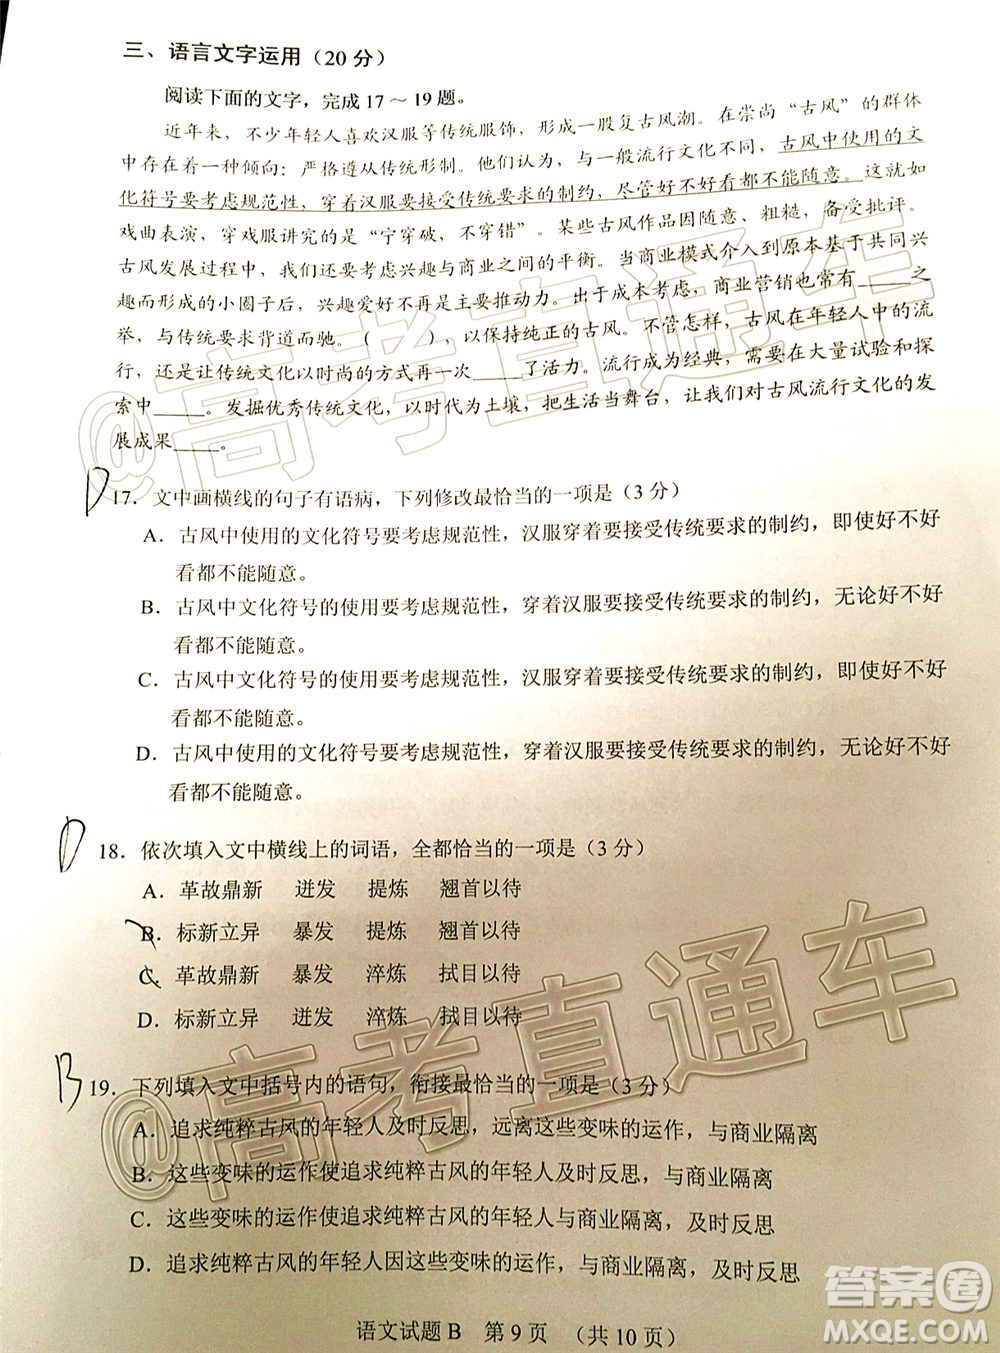 三、语言文字运用（20 分）
阅读下面的文字，完成 17～19 题。
近年来，不少年轻人喜欢汉服等传统服饰，形成一股复古风潮。在崇尚“古风”的群体
中存在着一种倾向：严格遵从传统形制。他们认为，与一般流行文化不同，古风中使用的文
化符号要考虑规范性，穿着汉服要接受传统要求的制约，尽管好不好看都不能随意。这就如
戏曲表演，穿戏服讲究的是“宁穿破，不穿错”。某些古风作品因随意、粗糙，备受批评。
古风发展过程中，我们还要考虑兴趣与商业之间的平衡。当商业模式介入到原本基于共同兴
趣而形成的小圈子后，兴趣爱好不再是主要推动力。出于成本考虑，商业营销也有____之
举，与传统要求背道而驰。（　　），以保持纯正的古风。不管怎样，古风在年轻人中的流
行，还是让传统文化以时尚的方式再一次____了活力。流行成为经典，需要在大量试验和探
索中____。发掘优秀传统文化，以时代为土壤，把生活当舞台，让我们对古风流行文化的发
展成果____。
D 17．文中画横线的句子有语病，下列修改最恰当的一项是（3 分）
A．古风中使用的文化符号要考虑规范性，汉服穿着要接受传统要求的制约，即使好不好
看都不能随意。
B．古风中文化符号的使用要考虑规范性，穿着汉服要接受传统要求的制约，无论好不好
看都不能随意。
C．古风中文化符号的使用要考虑规范性，汉服穿着要接受传统要求的制约，即使好不好
看都不能随意。
D．古风中使用的文化符号要考虑规范性，穿着汉服要接受传统要求的制约，无论好不好
看都不能随意。
D 18．依次填入文中横线上的词语，全都恰当的一项是（3 分）
A．革故鼎新　迸发　提炼　翘首以待
B．标新立异　暴发　提炼　翘首以待
C．革故鼎新　暴发　淬炼　拭目以待
D．标新立异　迸发　淬炼　拭目以待
B 19．下列填入文中括号内的语句，衔接最恰当的一项是（3 分）
A．追求纯粹古风的年轻人及时反思，远离这些变味的运作，与商业隔离
B．这些变味的运作使追求纯粹古风的年轻人及时反思，与商业隔离
C．这些变味的运作使追求纯粹古风的年轻人与商业隔离，及时反思
D．追求纯粹古风的年轻人因这些变味的运作，与商业隔离，及时反思
语文试题 B　第 9 页　（共 10 页）
@高考直通车
@高考直通车
答案圈
MXQE.COM